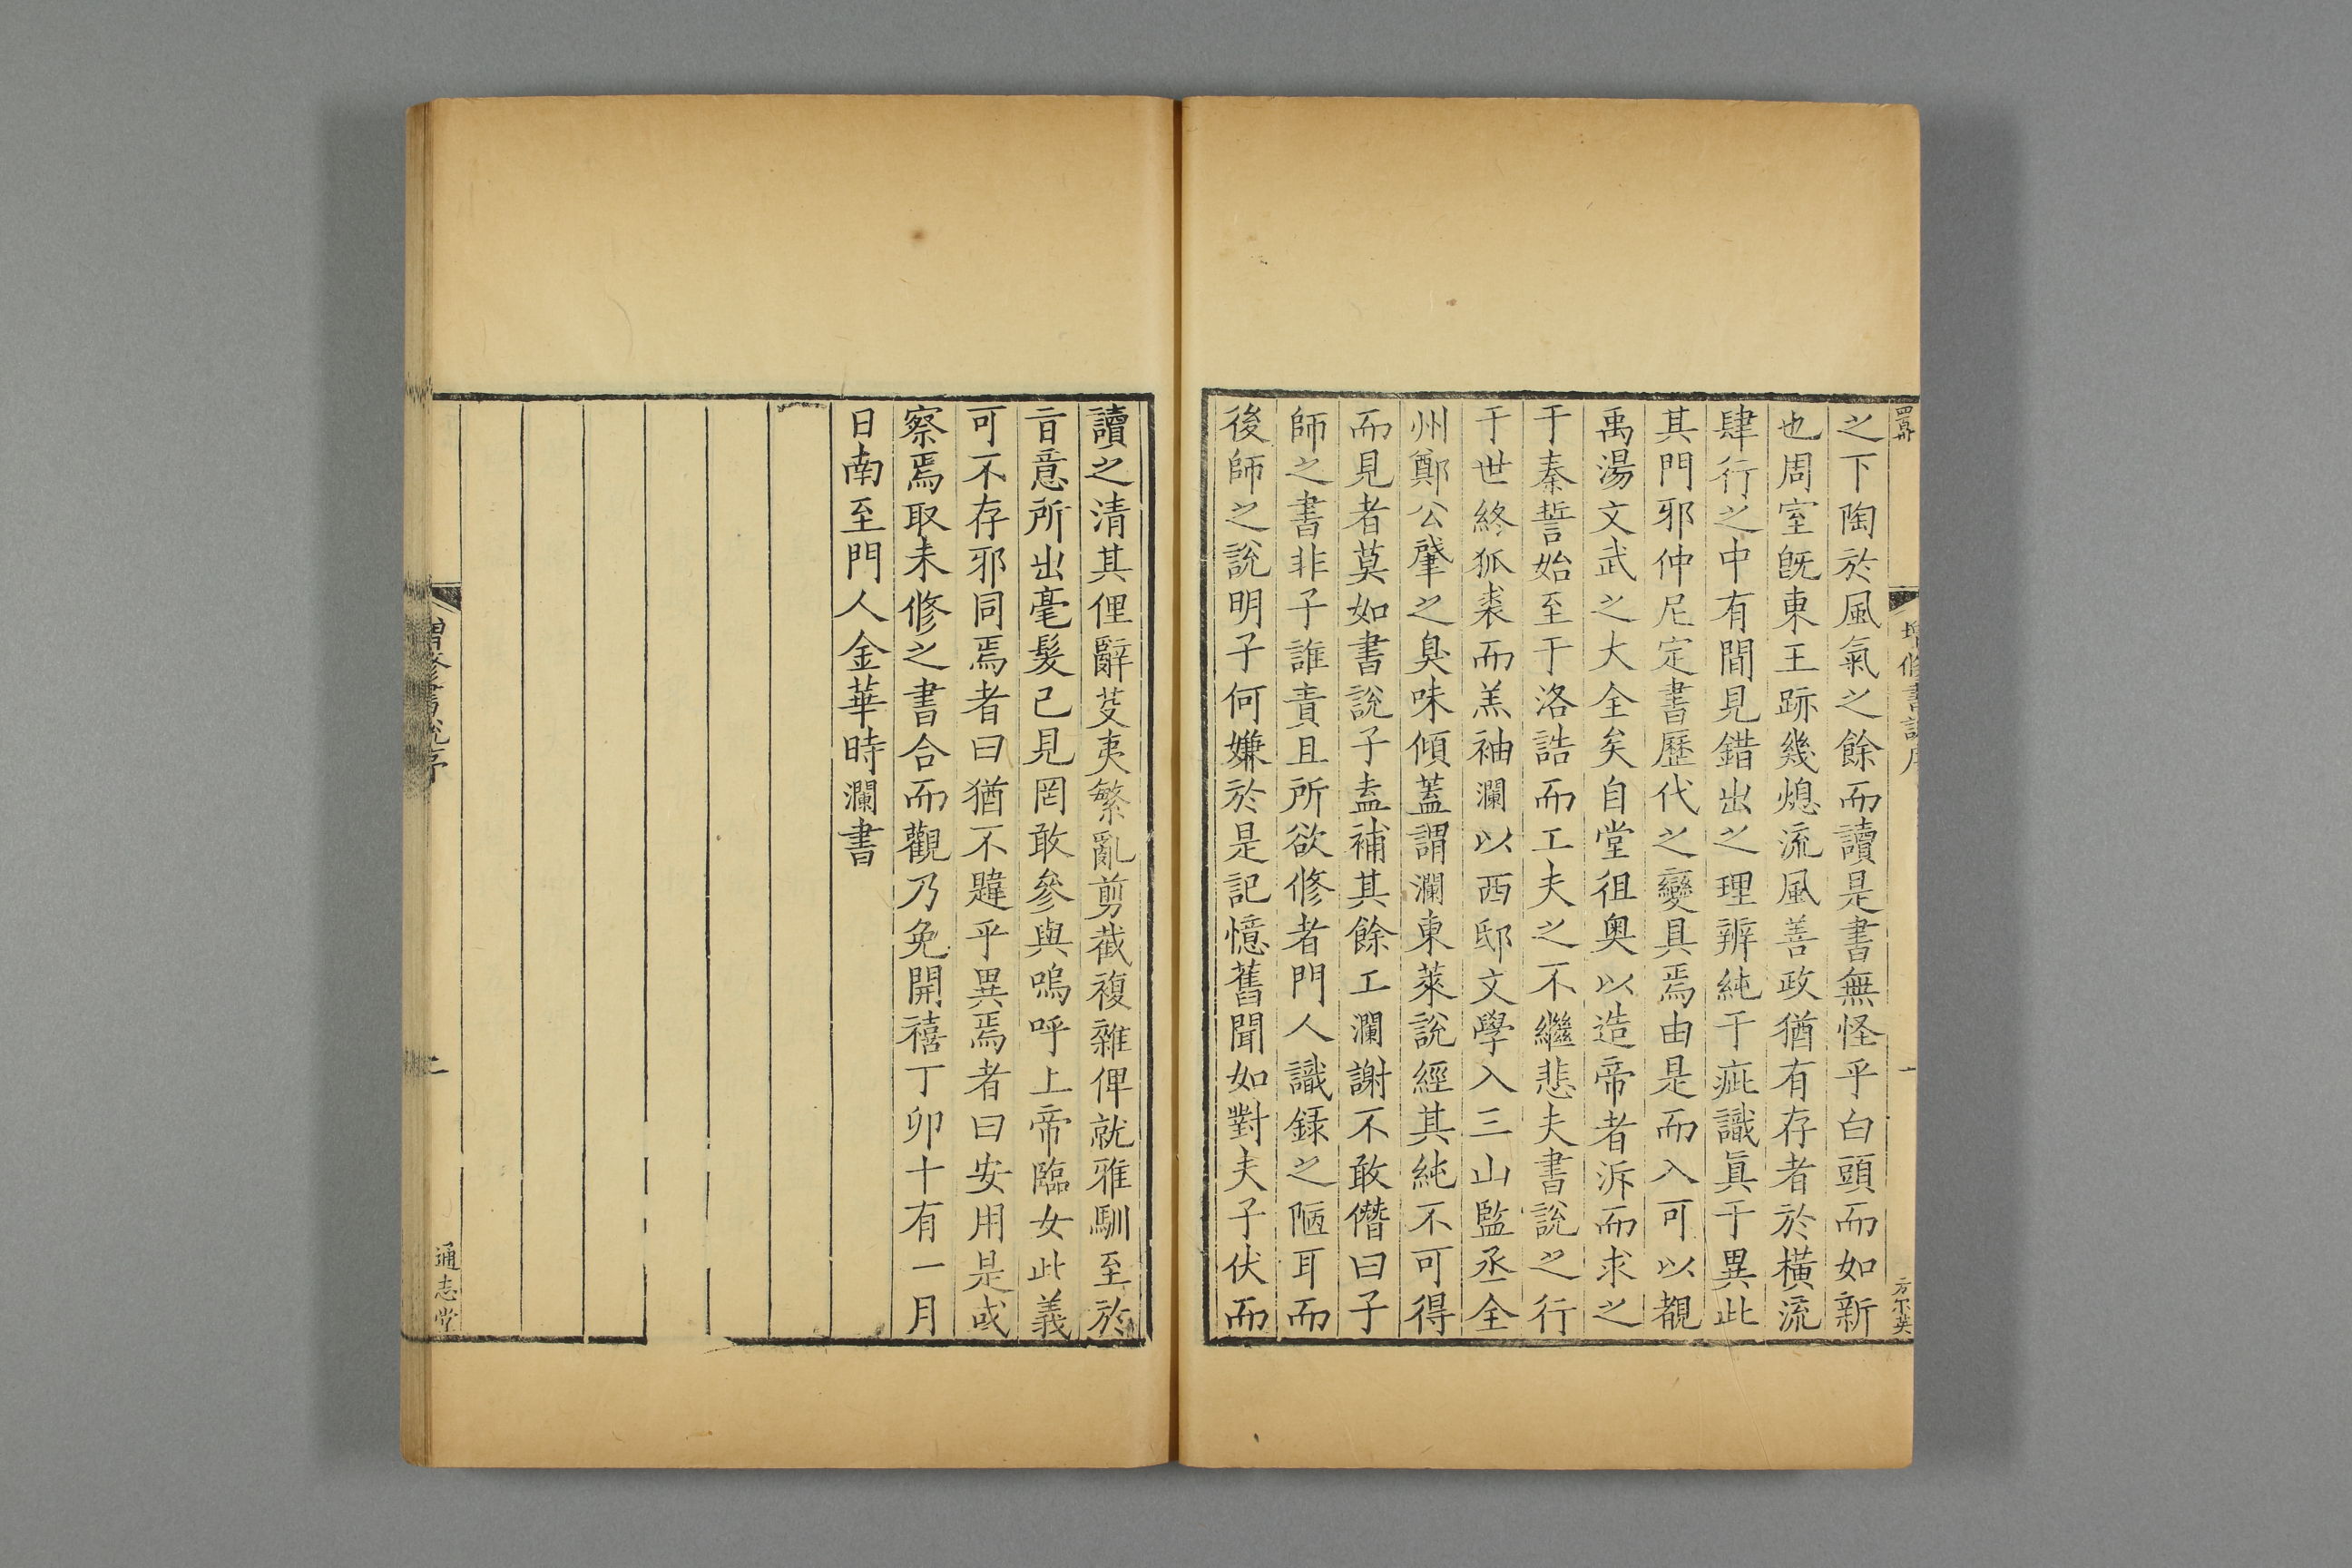 之下陶於風氣之餘而讀是書無怪乎白頭而如新
也周室旣東王跡幾熄流風善政猶有存者於橫流
肆行之中有間見錯出之理辨純于疵識眞于異此
其門邪仲尼定書歷代之變具焉由是而入可以觀
禹湯文武之大全矣自堂徂奧以造帝者泝而求之
于秦誓始至于洛誥而工夫之不繼悲夫書說之行
于世終狐裘而羔袖瀾以西邸文學入三山監丞全
州鄭公肇之臭味傾蓋謂瀾東萊說經其純不可得
而見者莫如書說子盍補其餘工瀾謝不敢僭曰子
師之書非子誰責且所欲修者門人識録之陋耳而
後師之說明子何嫌於是記憶舊聞如對夫子伏而
讀之清其俚辭芟夷繁亂剪截複雜俾就雅馴至於
㫖意所出毫髮已見罔敢參與嗚呼上帝臨女此義
可不存邪同焉者曰猶不韙乎異焉者曰安用是或
察焉取未修之書合而觀乃免開禧丁卯十有一月
日南至門人金華時瀾書
增修書說序
二
通志堂